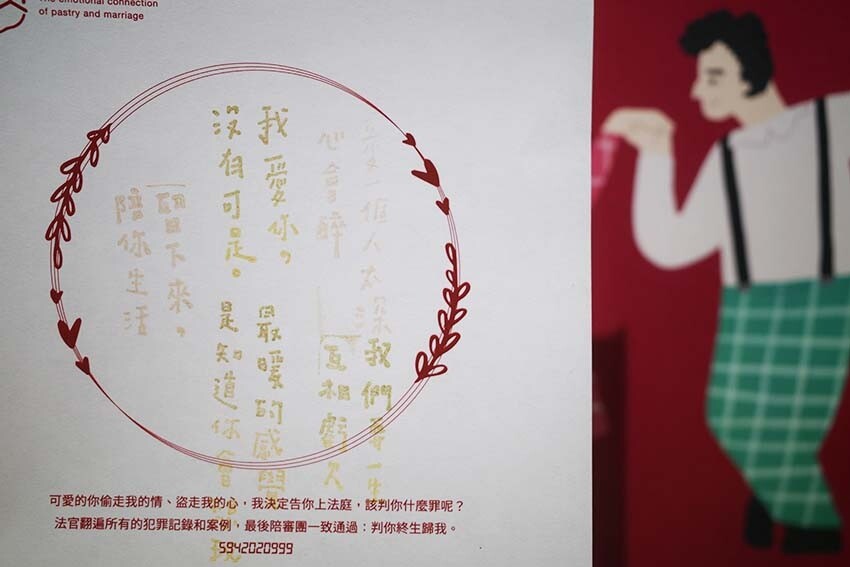 The emotional connection
of pastry and marriage
愛一個人太深
心會醉
我們要一生
互相虧欠
我愛你，
沒有可是。
最暖的感覺
是知道你會 我
留下來，
陪你生活
可愛的你偷走我的情、盜走我的心，我決定告你上法庭，該判你什麼罪呢？
法官翻遍所有的犯罪記錄和案例，最後陪審團一致通過：判你終生歸我。
5942020999